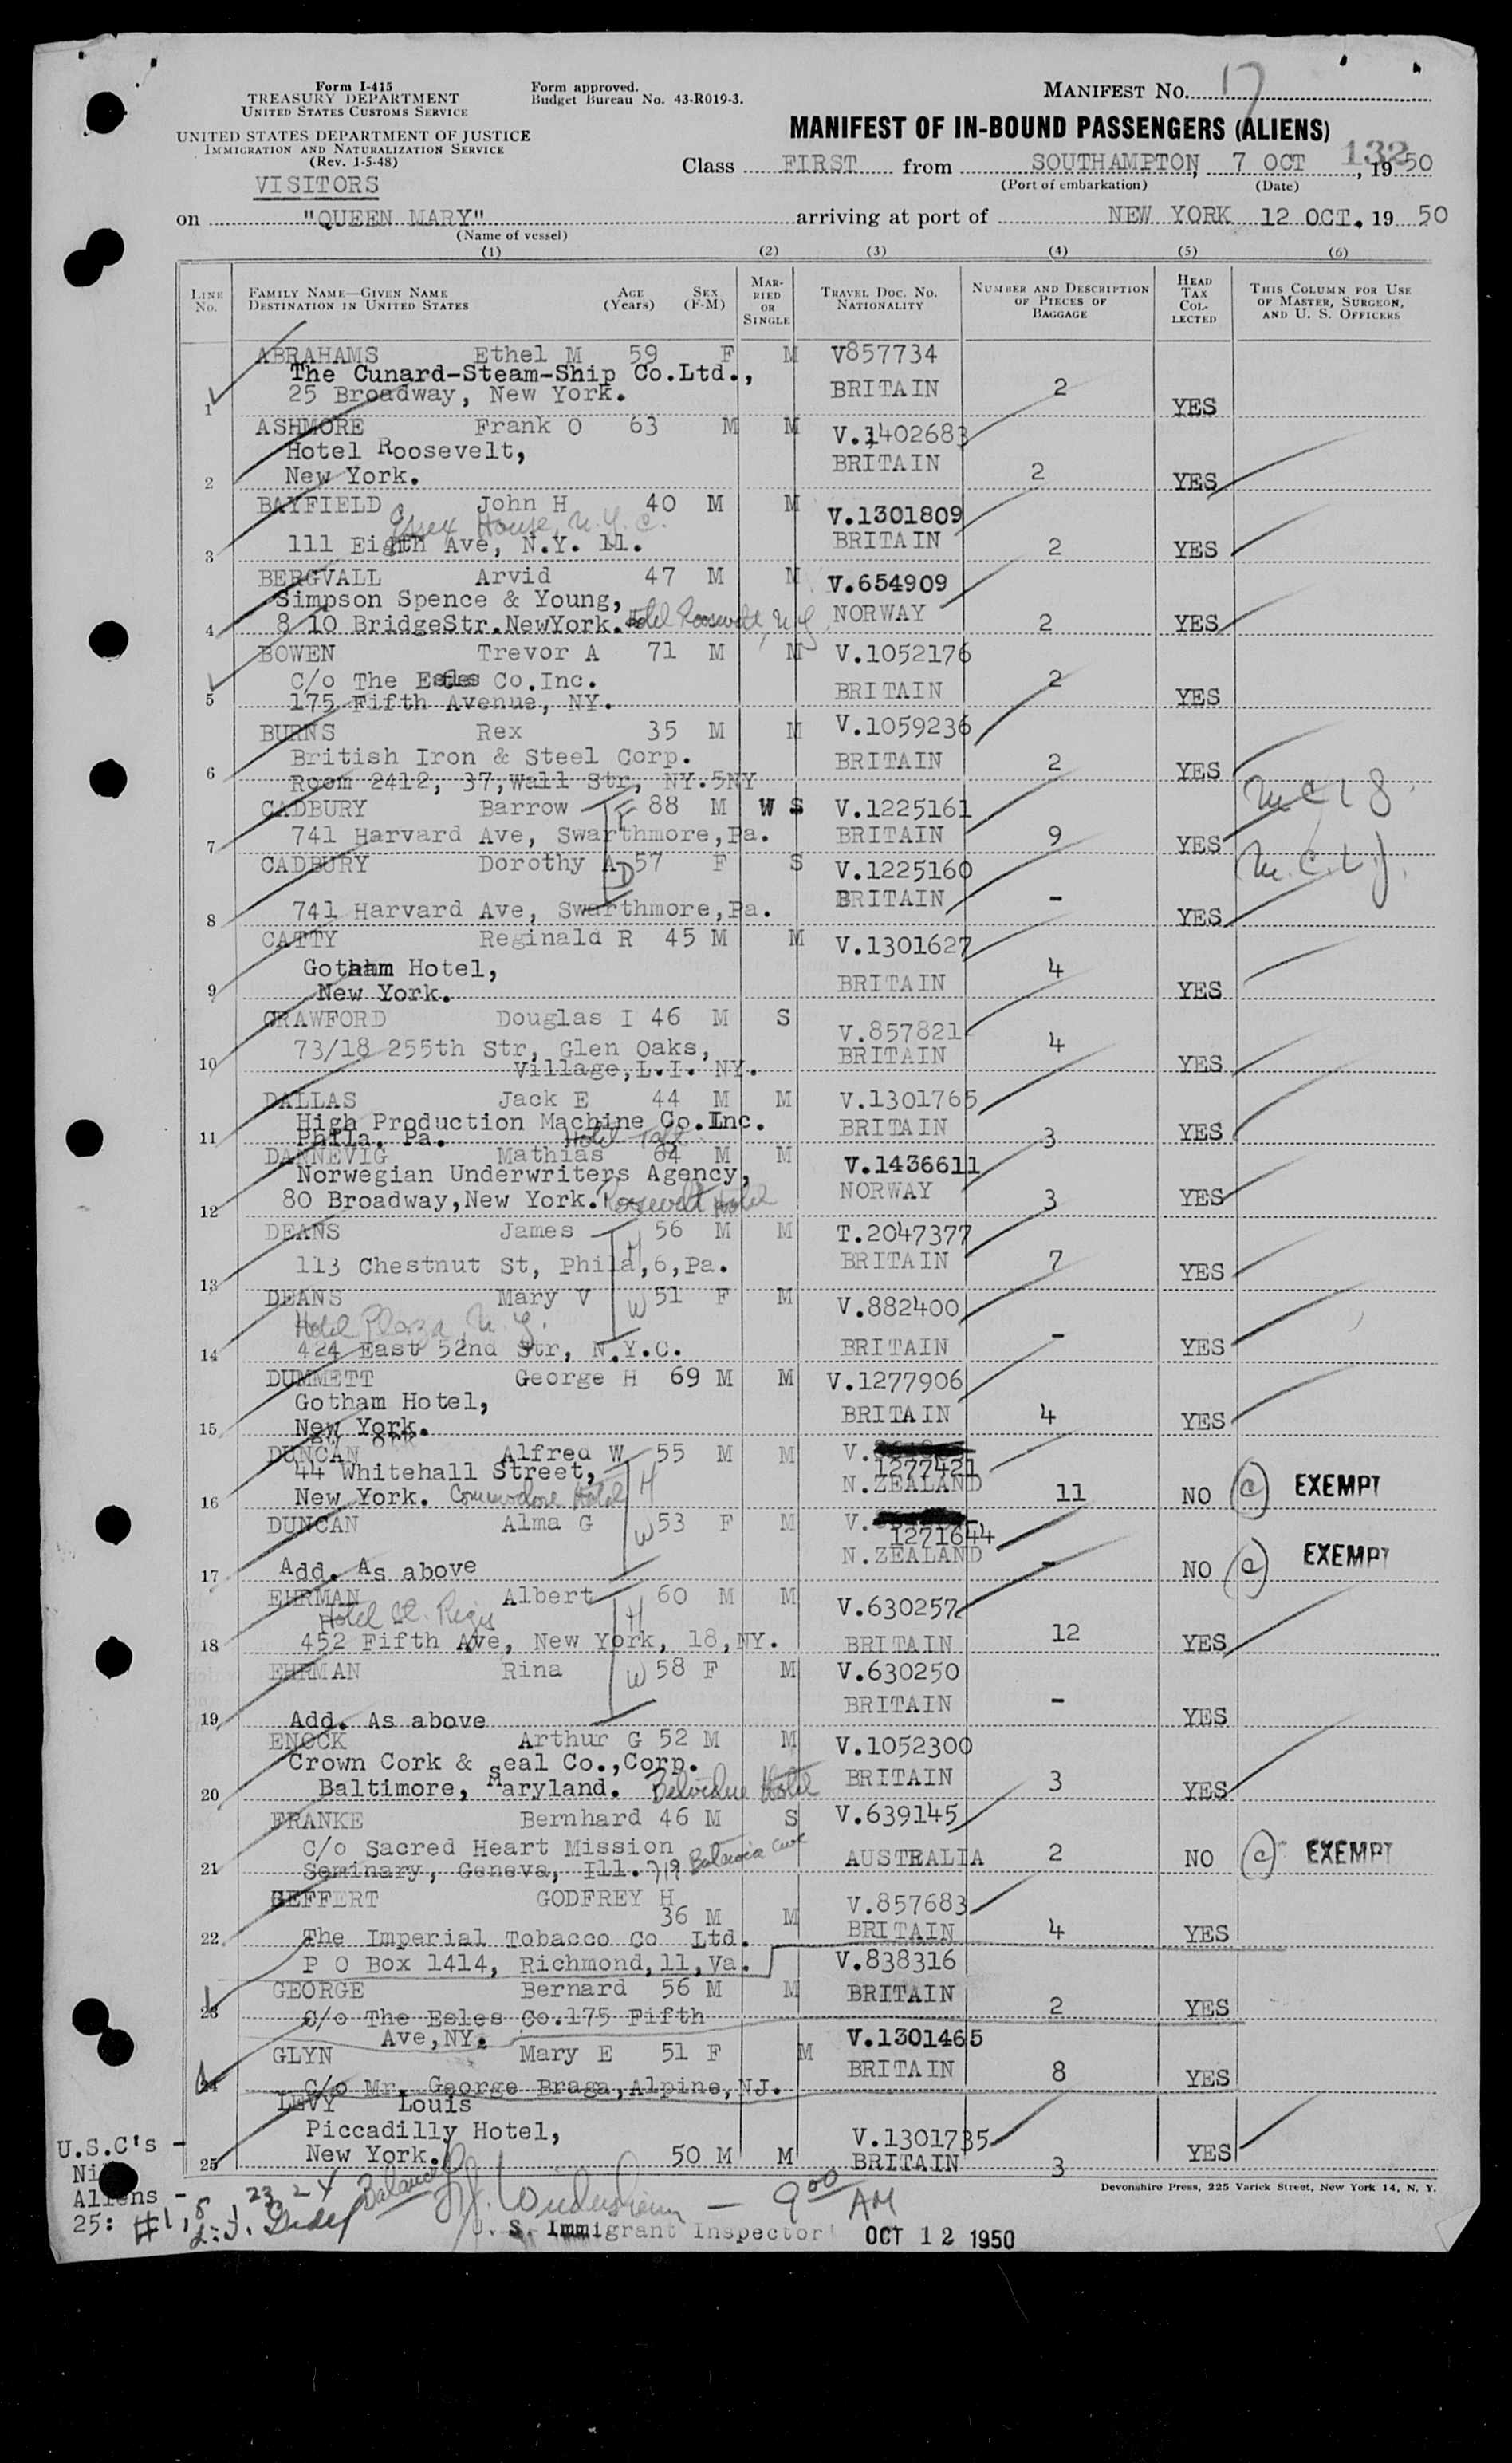 Form I-415
TREASURY DEPARTMENT
UNITED STATES CUSTOMS SERVICE
UNITED STATES DEPARTMENT OF JUSTICE
IMMIGRATION AND NATURALIZATION SERVICE
(Rev. 1-5-48)
VISITORS
Form approved.
Budget Bureau No. 43-R019-3.
MANIFEST NO. 17
MANIFEST OF IN-BOUND PASSENGERS (ALIENS)
132
Class FIRST from SOUTHAMPTON, 7 OCT, 1950
(Port of embarkation) (Date)
on "QUEEN MARY" arriving at port of NEW YORK 12 OCT. 1950
(Name of vessel)
(1) (2) (3) (4) (5) (6)
LINE NO. FAMILY NAME—GIVEN NAME DESTINATION IN UNITED STATES AGE (Years) SEX (F-M) MARRIED OR SINGLE TRAVEL DOC. NO. NATIONALITY NUMBER AND DESCRIPTION OF PIECES OF BAGGAGE HEAD TAX COLLECTED THIS COLUMN FOR USE OF MASTER, SURGEON, AND U. S. OFFICERS
ABRAHAMS Ethel M 59 F M V857734
The Cunard-Steam-Ship Co.Ltd.,
1 25 Broadway, New York. BRITAIN 2 YES
ASHMORE Frank O 63 M M V.1402683
Hotel Roosevelt,
2 New York. BRITAIN 2 YES
BAYFIELD John H 40 M M V.1301809
Essex House, N.Y.C.
3 111 Eighth Ave, N.Y. 11. BRITAIN 2 YES
BERGVALL Arvid 47 M M V.654909
Simpson Spence & Young,
4 8 10 BridgeStr.NewYork. Hotel Roosevelt, N.Y. NORWAY 2 YES
BOWEN Trevor A 71 M M V.1052176
C/o The Esles Co.Inc.
5 175 Fifth Avenue, NY. BRITAIN 2 YES
BURNS Rex 35 M M V.1059236
British Iron & Steel Corp.
6 Room 2412, 37,Wall Str, NY.5NY BRITAIN 2 YES
CADBURY Barrow F 88 M W S V.1225161
7 741 Harvard Ave, Swarthmore,Pa. BRITAIN 9 YES
CADBURY Dorothy A D 57 F S V.1225160
8 741 Harvard Ave, Swarthmore,Pa. BRITAIN - YES
CATTY Reginald R 45 M M V.1301627
Gotham Hotel,
9 New York. BRITAIN 4 YES
CRAWFORD Douglas I 46 M S V.857821
73/18 255th Str, Glen Oaks,
10 Village,L.I. NY. BRITAIN 4 YES
DALLAS Jack E 44 M M V.1301765
High Production Machine Co.Inc.
11 Phila. Pa. Hotel Taft BRITAIN 3 YES
DANNEVIG Mathias 64 M M V.1436611
Norwegian Underwriters Agency,
12 80 Broadway,New York. Roosevelt Hotel NORWAY 3 YES
DEANS James H 56 M M T.2047377
13 113 Chestnut St, Phila,6,Pa. BRITAIN 7 YES
DEANS Mary V W 51 F M V.882400
Hotel Plaza N.Y.
14 424 East 52nd Str, N.Y.C. BRITAIN - YES
DUMMETT George H 69 M M V.1277906
Gotham Hotel,
15 New York. BRITAIN 4 YES
DUNCAN Alfred W 55 M M V. 1277421
44 Whitehall Street,
16 New York. Commodore Hotel H N.ZEALAND 11 NO (c) EXEMPT
DUNCAN Alma G W 53 F M V. 1271644
17 Add. As above N.ZEALAND - NO (c) EXEMPT
EHRMAN Albert H 60 M M V.630257
Hotel St. Regis
18 452 Fifth Ave, New York, 18,NY. BRITAIN 12 YES
EHRMAN Rina W 58 F M V.630250
19 Add. As above BRITAIN - YES
ENOCK Arthur G 52 M M V.1052300
Crown Cork & Seal Co.,Corp.
20 Baltimore, Maryland. Belvidere Hotel BRITAIN 3 YES
FRANKE Bernhard 46 M S V.639145
C/o Sacred Heart Mission
21 Seminary, Geneva, Ill. 719 Batavia Ave AUSTRALIA 2 NO (c) EXEMPT
GEFFERT GODFREY H 36 M M V.857683
22 The Imperial Tobacco Co Ltd. BRITAIN 4 YES
P O Box 1414, Richmond,11,Va. V.838316
GEORGE Bernard 56 M M BRITAIN
23 C/o The Esles Co.175 Fifth 2 YES
Ave,NY. V.1301465
GLYN Mary E 51 F M BRITAIN 8
24 C/o Mr. George Braga,Alpine,NJ. YES
LEVY Louis
Piccadilly Hotel, V.1301735
25 New York. 50 M M BRITAIN 3 YES
U.S.C's -
Nil
Aliens -
25:
#1, 5 23 24
Balance
9 00 AM
U. S. Immigrant Inspector OCT 12 1950
Devonshire Press, 225 Varick Street, New York 14, N. Y.